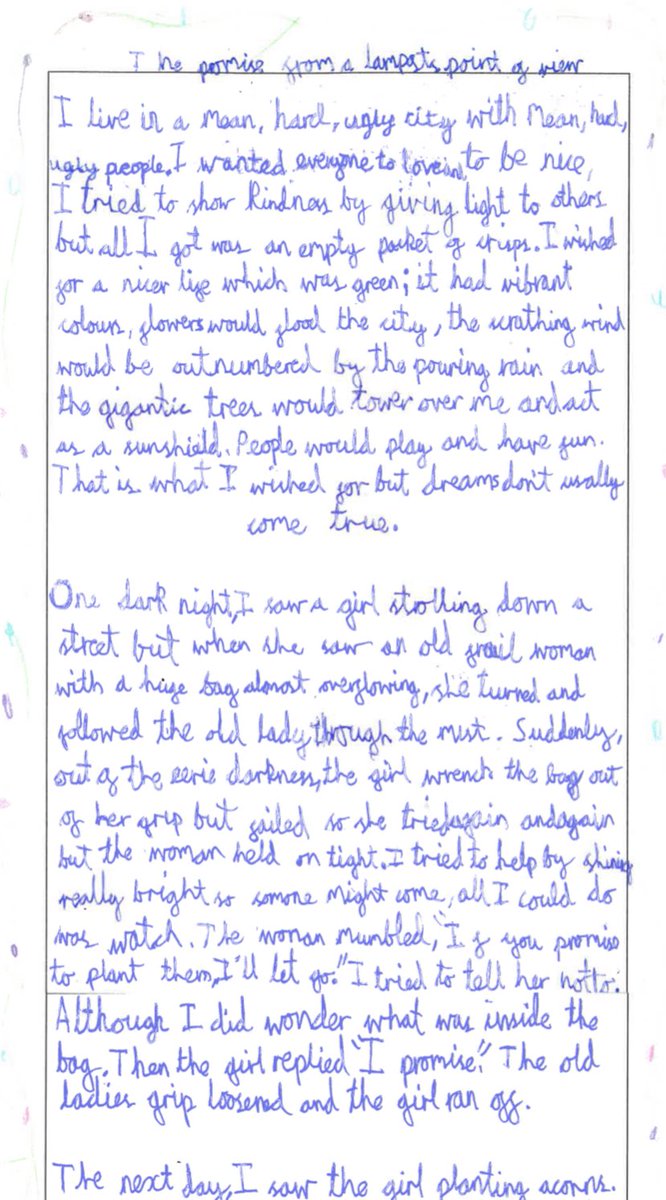 The promise from a lampsts point of view
I live in a mean, hard, ugly city with mean, hard,
ugly people. I wanted everyone to love and to be nice,
I tried to show kindness by giving light to others
but all I got was an empty packet of crisps. I wished
for a nicer life which was green; it had vibrant
colours, flowers would flood the city, the scrathing wind
would be outnumbered by the pouring rain and
the gigantic trees would tower over me and act
as a sunshield. People would play and have fun.
That is what I wished for but dreams don't usally
come true.
One dark night, I saw a girl strolling down a
street but when she saw an old frail woman
with a huge bag almost overflowing, she turned and
followed the old lady through the mist. Suddenly,
out of the eerie darkness, the girl wrench the bag out
of her grip but failed so she tried again and again
but the woman held on tight. I tried to help by shining
really bright so somone might come, all I could do
was watch. The woman mumbled, "If you promise
to plant them, I'll let go." I tried to tell her not to.
Although I did wonder what was inside the
bag. Then the girl replied "I promise." The old
ladies grip loosened and the girl ran off.
The next day, I saw the girl planting acorns.